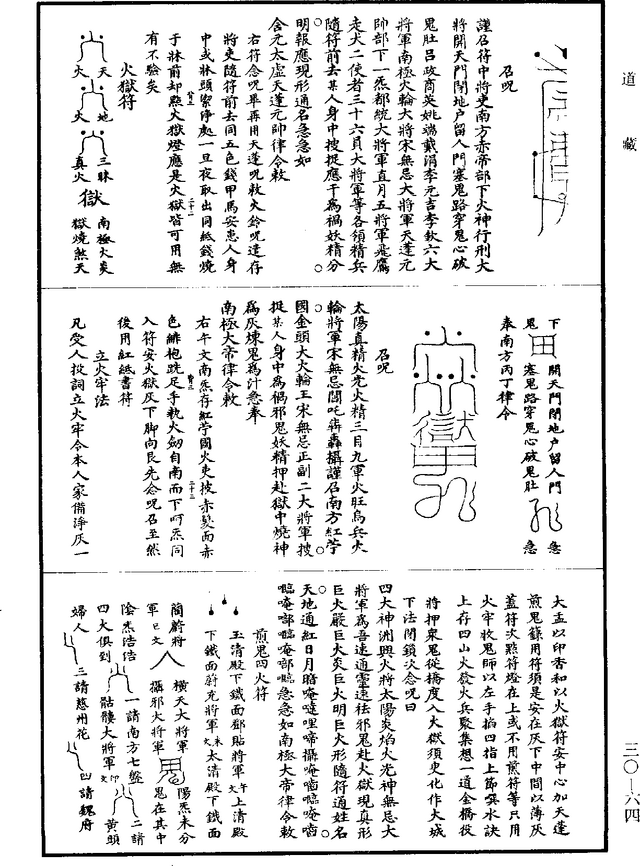 道藏
召呪
謹召符中將吏南方赤帝部下火神行刑大
將開天門閉地户留人門塞鬼路穿鬼心破
鬼肚吕政商英姚端戴涓李元吉李欽六大
將軍南極火輪大將宋無忌大將軍天蓬元
帥部下一炁都統大將軍直月五將軍飛鷹
走犬二使者三十六員大將軍等各領精兵
隨符前去某人身中搜捉應干為禍妖精分
明報應現形通名急急如
含元太虚天蓬元帥律令敕
右符念呪畢再用天蓬呪敕火鈴呪逹存
將吏隨符前去同五色錢甲馬安患人身
中或牀頭絮淨處一旦夜取出同紙錢燒
于牀前却點火獄燈應是火獄皆可用無
有不驗矣
火獄符
天 火
地 火
三昧 真火
獄
南極火炎
獄燒煞天
下
鬼
開天門閉地户留人門
塞鬼路穿鬼心破鬼肚
急
急
奉南方丙丁律令
召呪
太陽真精火光火精三目九軍火旺烏兵火
輪將軍宋無忌閼吒犇轟攝謹召南方紅学
國金頭大火輪王宋無忌正副二大將軍搜
捉某人身中為禍邪鬼妖精押赴獄中燒神
為灰煉鬼為汁急奉
南極大帝律令敕
右午文南炁存紅学國火吏披赤髮面赤
色緋袍跣足手執火劒自南而下呵炁同
入符安火獄灰下脚向艮先念呪召至然
後用紅紙書符
立火牢法
凡受人投詞立火牢令本人家備淨灰一
大盂以印香和以火獄符安中心加天蓬
煎鬼籙用符須是安在灰下中間以薄灰
蓋符次㸃符燈在上或不用煎符等只用
火牢收鬼師以左手掐四指上節噀水訣
上存四山火發火兵聚集想一道金橋役
將押衆鬼從橋度入火獄須臾化作大城
下法閉鎖次念呪曰
四大神洲興火將太陽炎焰火光神無忌大
將軍為吾速通靈速祛邪鬼赴火獄現真形
巨火嚴巨火炎巨火明巨火形隨符通姓名
天地通紅日月暗唵噠哩啼攝唵𪡏㘄唵𪡏
㘄唵㗶㘄唵㗶㘄急急如南極大帝律令敕
煎鬼四火符
玉清殿下鐵面鄧貼將軍午文上清殿
下鐵面蔚充將軍未文太清殿下鐵面
簡蔚將
軍巳文
橫天大將軍
攝邪大將軍
陽炁未分
鬼在其中
陰炁浩浩
四火俱到
一請南方七盤
骷髏大將軍文印
二請
黄頭
婦人
三請慈州花
四請魏府
三〇—六四